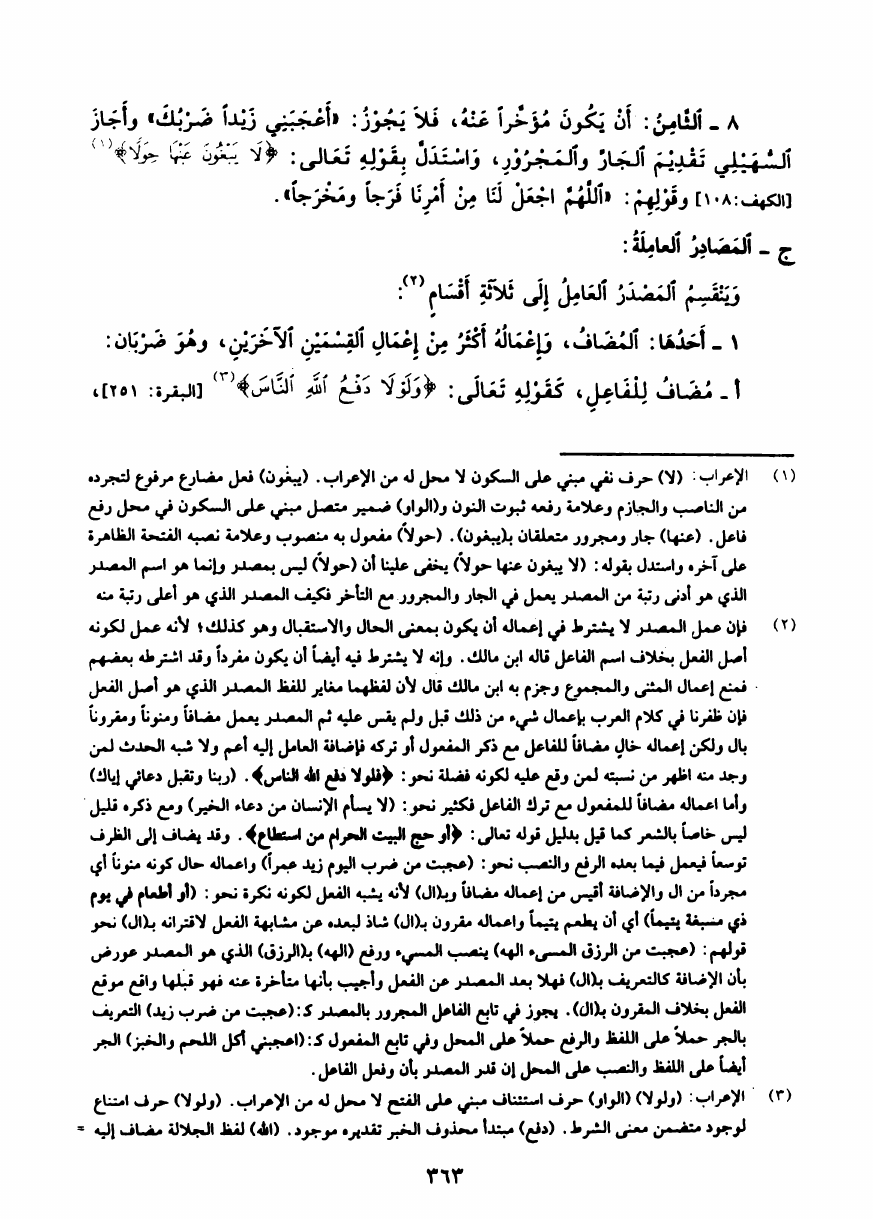 ٨ - ٱلثَّامِنُ: أَنْ يَكُونَ مُؤَخَّراً عَنْهُ، فَلاَ يَجُوْزُ: «أَعْجَبَنِي زَيْداً ضَرْبُكَ» وأَجَازَ
ٱلسُّهَيْلِي تَقْدِيْمَ ٱلجَارِّ وٱلمَجْرُوْرِ، وَاسْتَدَلَّ بِقَوْلِهِ تَعَالى: ﴿لَا يَبْغُونَ عَنْهَا حِوَلًا﴾(١)
[الكهف:١٠٨] وقَوْلِهِمْ: «ٱللَّهُمَّ اجْعَلْ لَنَا مِنْ أَمْرِنَا فَرَجاً ومَخْرَجاً».
ج - ٱلمَصَادِرُ ٱلعامِلَةُ:
وَيَنْقَسِمُ ٱلمَصْدَرُ ٱلعَامِلُ إِلَى ثَلاَثَةِ أَقْسَامٍ(٢):
١ - أَحَدُهَا: ٱلمُضَافُ، وَإِعْمَالُهُ أَكْثَرُ مِنْ إِعْمَالِ ٱلقِسْمَيْنِ ٱلآخَرَيْنِ، وهُوَ ضَرْبَان:
أ - مُضَافُ لِلْفَاعِلِ، كَقَوْلِهِ تَعَالَى: ﴿وَلَوْلَا دَفْعُ ٱللَّهِ ٱلنَّاسَ﴾(٣) [البقرة: ٢٥١]،
(١) الإعراب: (لا) حرف نفي مبني على السكون لا محل له من الإعراب. (يبغون) فعل مضارع مرفوع لتجرده
من الناصب والجازم وعلامة رفعه ثبوت النون و(الواو) ضمير متصل مبني على السكون في محل رفع
فاعل. (عنها) جار ومجرور متعلقان بـ(يبغون). (حولاً) مفعول به منصوب وعلامة نصبه الفتحة الظاهرة
على آخره واستدل بقوله: (لا يبغون عنها حولاً) يخفى علينا أن (حولاً) ليس بمصدر وإنما هو اسم المصدر
الذي هو أدنى رتبة من المصدر يعمل في الجار والمجرور مع التأخر فكيف المصدر الذي هو أعلى رتبة منه
(٢) فإن عمل المصدر لا يشترط في إعماله أن يكون بمعنى الحال والاستقبال وهو كذلك؛ لأنه عمل لكونه
أصل الفعل بخلاف اسم الفاعل قاله ابن مالك. وإنه لا يشترط فيه أيضاً أن يكون مفرداً وقد اشترطه بعضهم
فمنع إعمال المثنى والمجموع وجزم به ابن مالك قال لأن لفظهما مغاير للفظ المصدر الذي هو أصل الفعل
فإن ظفرنا في كلام العرب بإعمال شيء من ذلك قبل ولم يقس عليه ثم المصدر يعمل مضافاً ومنوناً ومقروناً
بال ولكن إعماله خالٍ مضافاً للفاعل مع ذكر المفعول أو تركه فإضافة العامل إليه أعم ولا شبه الحدث لمن
وجد منه اظهر من نسبته لمن وقع عليه لكونه فضلة نحو: ﴿فلولا دفع الله الناس﴾. (ربنا وتقبل دعائي إياك)
وأما اعماله مضافاً للمفعول مع ترك الفاعل فكثير نحو: (لا يسأم الإنسان من دعاء الخير) ومع ذكره قليل
ليس خاصاً بالشعر كما قيل بدليل قوله تعالى: ﴿أو حج البيت الحرام من استطاع﴾. وقد يضاف إلى الظرف
توسعاً فيعمل فيما بعده الرفع والنصب نحو: (عجبت من ضرب اليوم زيد عمراً) واعماله حال كونه منوناً أي
مجرداً من ال والإضافة أقيس من إعماله مضافاً وبـ(ال) لأنه يشبه الفعل لكونه نكرة نحو: (أو أطعام في يوم
ذي مسغبة يتيماً) أي أن يطعم يتيماً واعماله مقرون بـ(ال) شاذ لبعده عن مشابهة الفعل لاقترانه بـ(ال) نحو
قولهم: (عجبت من الرزق المسيء الهه) ينصب المسيء ورفع (الهه) بـ(الرزق) الذي هو المصدر عورض
بأن الإضافة كالتعريف بـ(ال) فهلا بعد المصدر عن الفعل وأجيب بأنها متأخرة عنه فهو قبلها واقع موقع
الفعل بخلاف المقرون بـ(ال). يجوز في تابع الفاعل المجرور بالمصدر كـ:(عجبت من ضرب زيد) التعريف
بالجر حملاً على اللفظ والرفع حملاً على المحل وفي تابع المفعول كـ:(اعجبني أكل اللحم والخبز) الجر
أيضاً على اللفظ والنصب على المحل إن قدر المصدر بأن وفعل الفاعل.
(٣) الإعراب: (ولولا) (الواو) حرف استئناف مبني على الفتح لا محل له من الإعراب. (ولولا) حرف امتناع
لوجود متضمن معنى الشرط. (دفع) مبتدأ محذوف الخبر تقديره موجود. (الله) لفظ الجلالة مضاف إليه =
٣٦٣